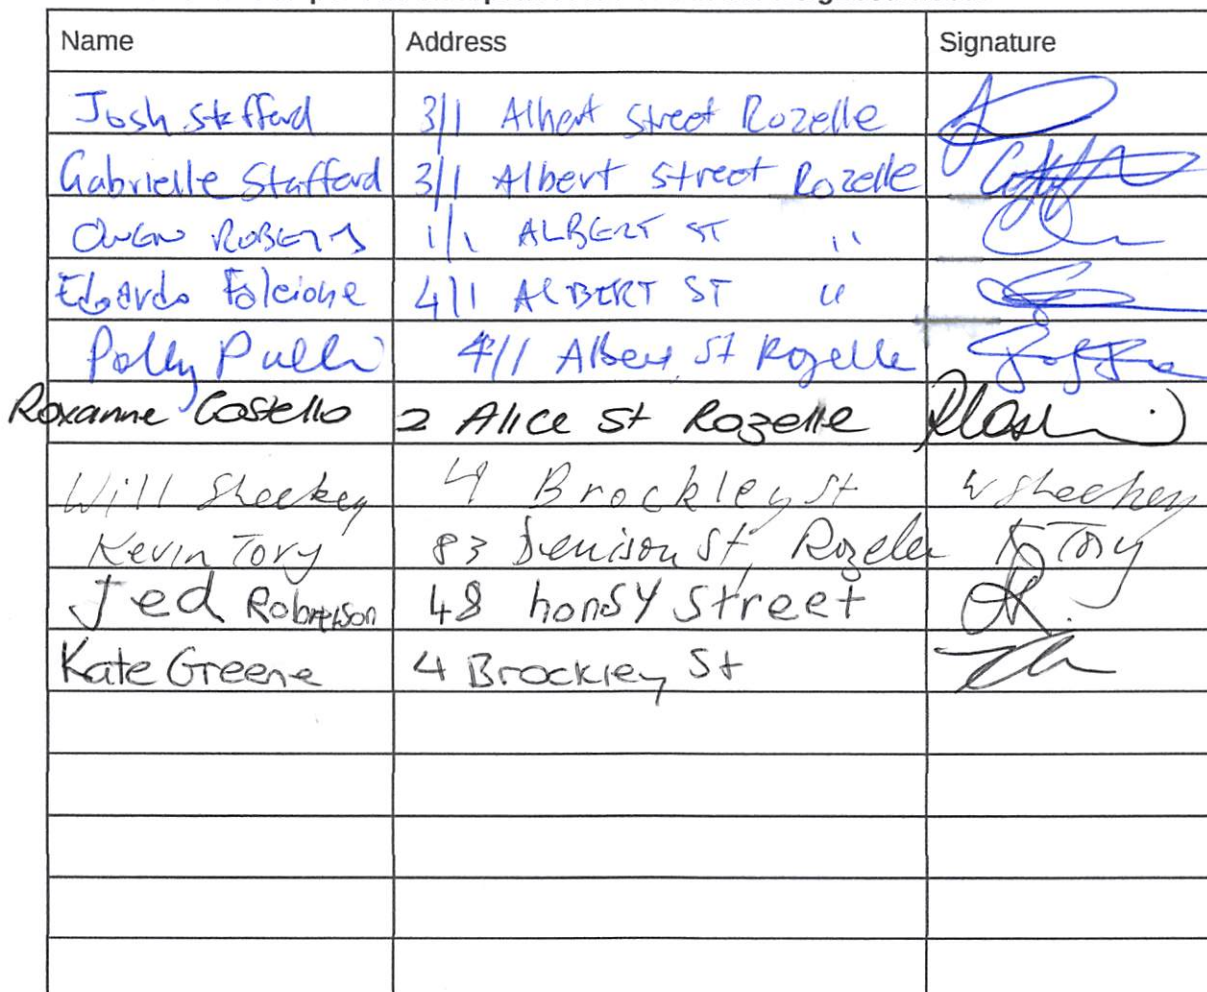 Name Address Signature
Josh Stafford 3/1 Albert Street Rozelle
Gabrielle Stafford 3/1 Albert Street Rozelle
Owen ROBERTS 1/1 ALBERT ST "
Edoardo Falcione 4/1 ALBERT ST "
Polly 4/1 Albert St Rozelle
Roxanne Costello 2 Alice St Rozelle
Will Sheekey 4 Brockley St W Sheekey
Kevin Tory 83 Denison St, Rozelle K Tory
Jed Robertson 48 Street
Kate Greene 4 Brockley St